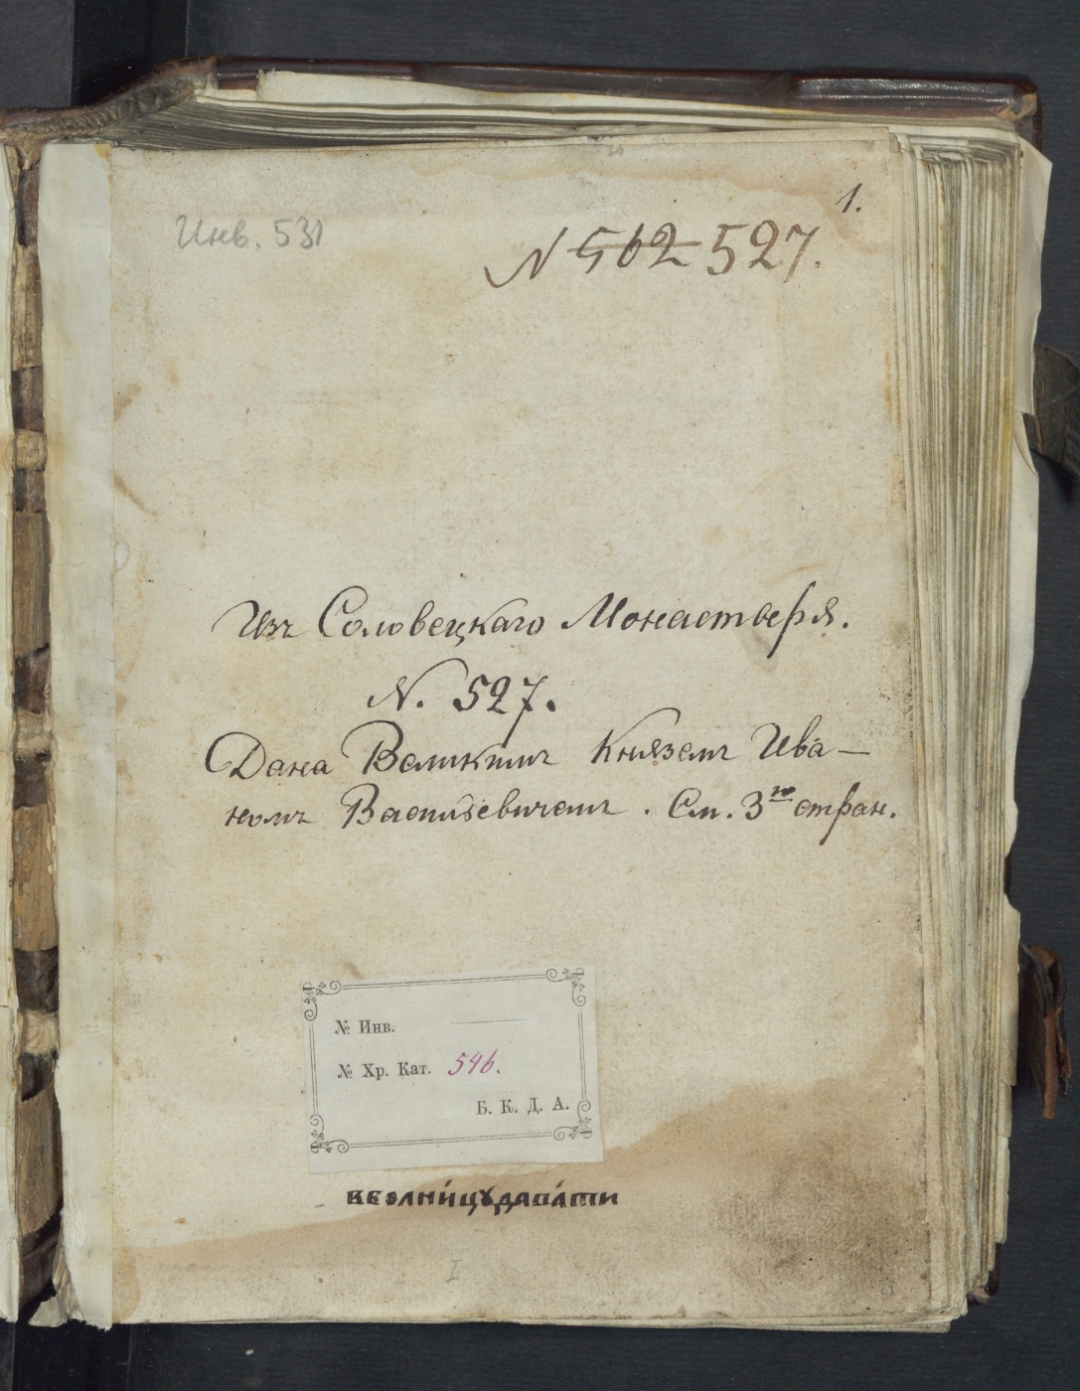 1.
Инв. 531
N 562 527.
Изъ Соловецкаго Монастыря.
N. 527.
Дана Великимъ Княземъ Ива-
номъ Васильевичемъ. См. 3ю стран.
№ Инв.
№ Хр. Кат. 546.
Б. К. Д. А.
вболни́цꙋдава́ти
I